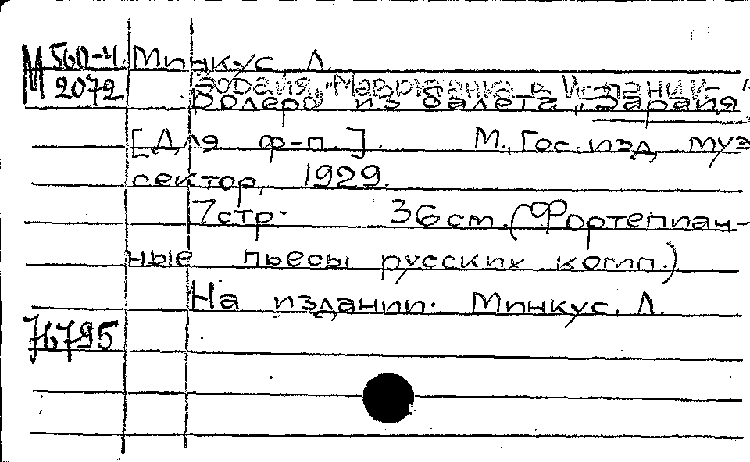 М 560-4 Минкус Л.
2072 Зорайя, "Мавританка в Испании"
Болеро из балета „Зарайя"
[Для ф-п.]. М., Гос. изд. муз
сектор, 1929.
7стр. 36см. (Фортепиан-
ные пьесы русских комп.)
На издании: Минкус, Л.
76795